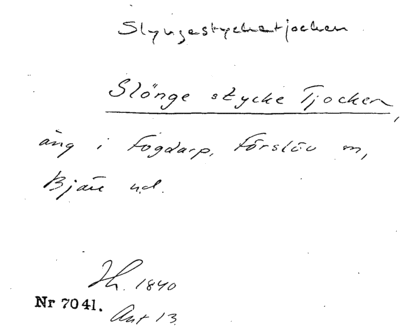 Slyngestycketjocken
Slönge stycke Tjocken,
äng i Fogdarp, Förslöv sn,
Bjäre hd.
Jh. 1840
Nr 7041. Akt 13